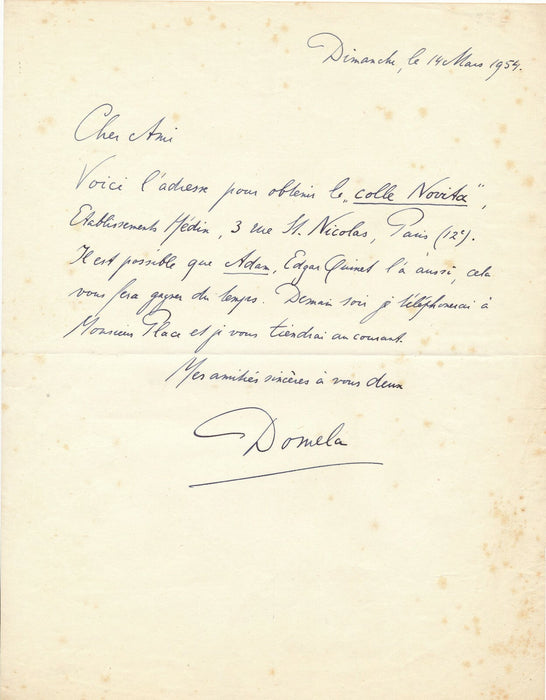 Dimanche, le 14 Mars 1954.
Cher Ami
Voici l'adresse pour obtenir le „colle Novita",
Etablissements Médin, 3 rue St. Nicolas, Paris (12e).
Il est possible que Adam, Edgar Quinet l'a aussi, cela
vous fera gagner du temps. Demain soir je téléphonerai à
Monsieur Place et je vous tiendrai au courant.
Mes amitiés sincères à vous deux
Domela